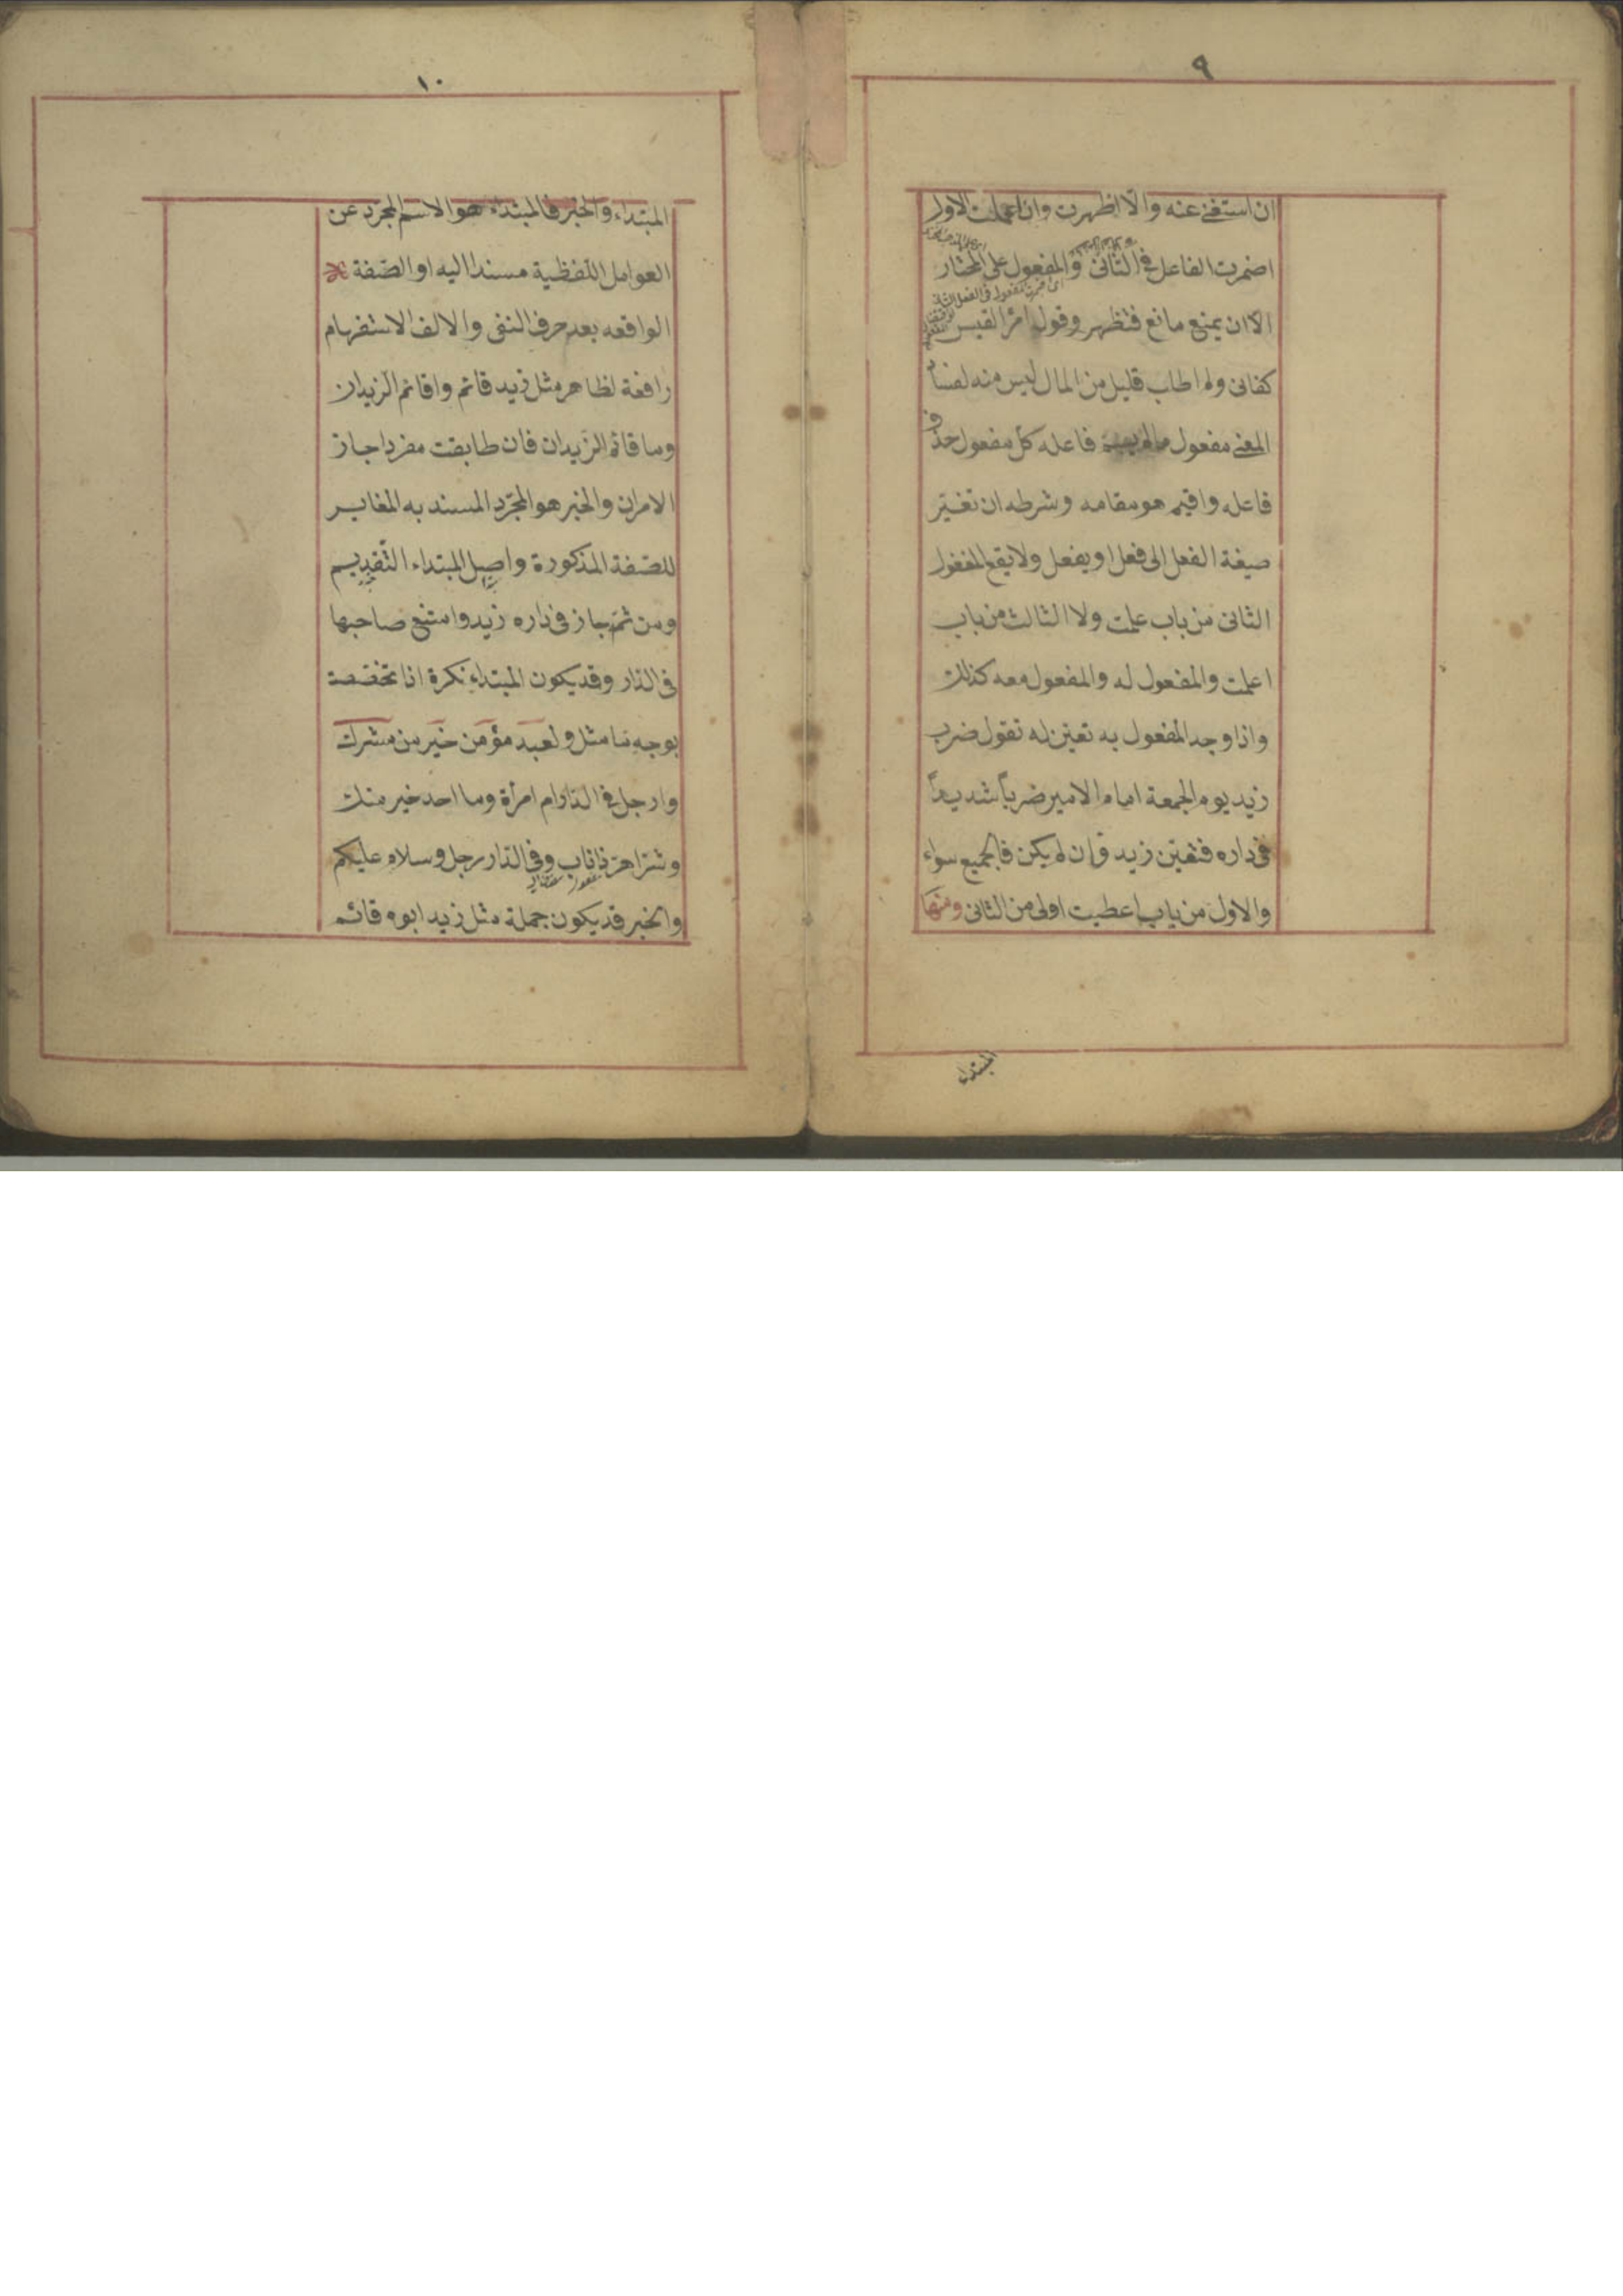 ٩
ان استغنى عنه والا اظهرت وان اعملت الاول
اضمرت الفاعل فى الثانى والمفعول على المختار
الا ان يمنع مانع فتظهر وقول امرأ القيس
كفانى ولم اطلب قليل من المال ليس منه لفساد
المعنى مفعول ما لم يسم فاعله كل مفعول حذف
فاعله واقيم هو مقامه وشرطه ان تغير
صيغة الفعل الى فعل او يفعل ولا يقع المفعول
الثانى من باب علمت ولا الثالث من باب
اعلمت والمفعول له والمفعول معه كذلك
واذا وجد المفعول به تعين له تقول ضرب
زيد يوم الجمعة امام الامير ضرباً شديداً
فى داره فتعين زيد فان لم يكن فالجميع سواء
والاول من باب اعطيت اولى من الثانى ومنها
المبتداء
١٠
المبتداء والخبر فالمبتداء هو الاسم المجرد عن
العوامل اللفظية مسندا اليه او الصّفة
الواقعه بعد حرف النفى والالف الاستفهام
رافعة لظاهر مثل زيد قائم واقائم الزيدان
وما قائم الزيدان فان طابقت مفردا جاز
الامران والخبر هو المجرّد المسند به المغاير
للصّفة المذكورة واصل المبتداء التّقديم
ومن ثمّ جاز فى داره زيد وامتنع صاحبها
فى الدار وقد يكون المبتداء نكرة اذا تخصصت
بوجه ما مثل ولعبد مؤمن خير من مشرك
وارجل فى الدار ام امرأة وما احد خير منك
وشرّ اهرّ ذا ناب وفى الدار رجل وسلام عليكم
والخبر قد يكون جملة مثل زيد ابوه قائم